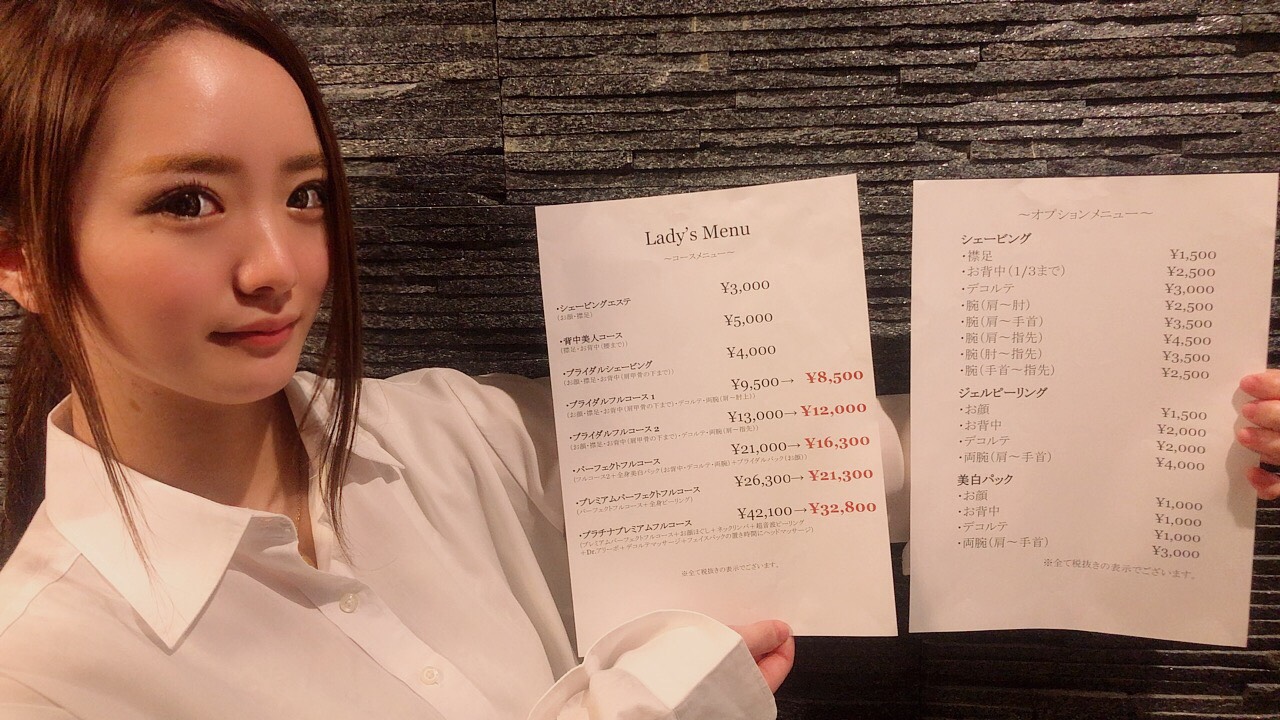 Lady's Menu
～コースメニュー～
¥3,000
・シェービングエステ
(お顔・襟足)
¥5,000
・背中美人コース
(襟足・お背中(腰まで))
¥4,000
・ブライダルシェービング
(お顔・襟足・お背中(肩甲骨の下まで))
¥9,500→ ¥8,500
・ブライダルフルコース1
(お顔・襟足・お背中(肩甲骨の下まで)・デコルテ・両腕(肩～肘上))
¥13,000→¥12,000
・ブライダルフルコース2
(お顔・襟足・お背中(肩甲骨の下まで)・デコルテ・両腕(肩～指先))
¥21,000→¥16,300
・パーフェクトフルコース
(フルコース2＋全身美白パック(お背中・デコルテ・両腕)＋ブライダルパック(お顔))
¥26,300→¥21,300
・プレミアムパーフェクトフルコース
(パーフェクトフルコース＋全身ピーリング)
¥42,100→¥32,800
・プラチナプレミアムフルコース
(プレミアムパーフェクトフルコース＋お顔ほぐし＋ネックリンパ＋超音波ピーリング
＋Dr.アリーボ＋デコルテマッサージ＋フェイスパックの置き時間にヘッドマッサージ)
※全て税抜きの表示でございます。
～オプションメニュー～
シェービング
・襟足 ¥1,500
・お背中(1/3まで) ¥2,500
・デコルテ ¥3,000
・腕(肩～肘) ¥2,500
・腕(肩～手首) ¥3,500
・腕(肩～指先) ¥4,500
・腕(肘～指先) ¥3,500
・腕(手首～指先) ¥2,500
ジェルピーリング
・お顔 ¥1,500
・お背中 ¥2,000
・デコルテ ¥2,000
・両腕(肩～手首) ¥4,000
美白パック
・お顔 ¥1,000
・お背中 ¥1,000
・デコルテ ¥1,000
・両腕(肩～手首) ¥3,000
※全て税抜きの表示でございます。